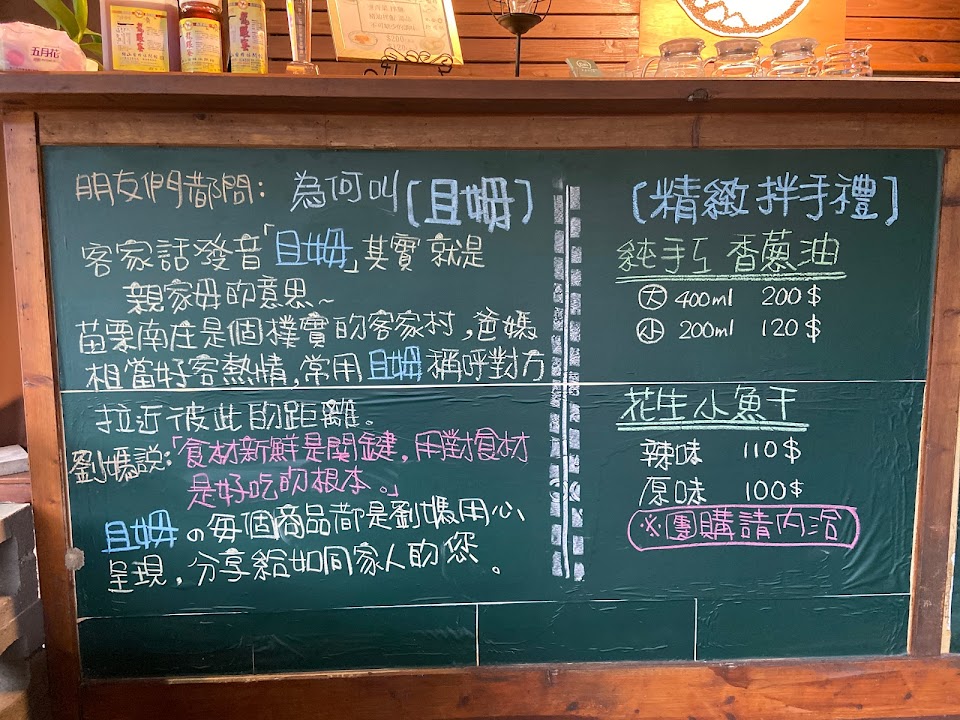 五月花
龍眼蜜
朋友們都問：為何叫[且姆]
客家話發音「且姆」其實就是
親家母的意思~
苗栗南庄是個樸實的客家村，爸媽
相當好客熱情，常用且姆稱呼對方
拉近彼此的距離。
劉媽說：「食材新鮮是關鍵，用對食材
是好吃的根本。」
且姆の每個商品都是劉媽用心
呈現，分享給如同家人的您。
[精緻拌手禮]
純手工香蔥油
大 400ml 200$
小 200ml 120$
花生小魚干
辣味 110$
原味 100$
※團購請內洽